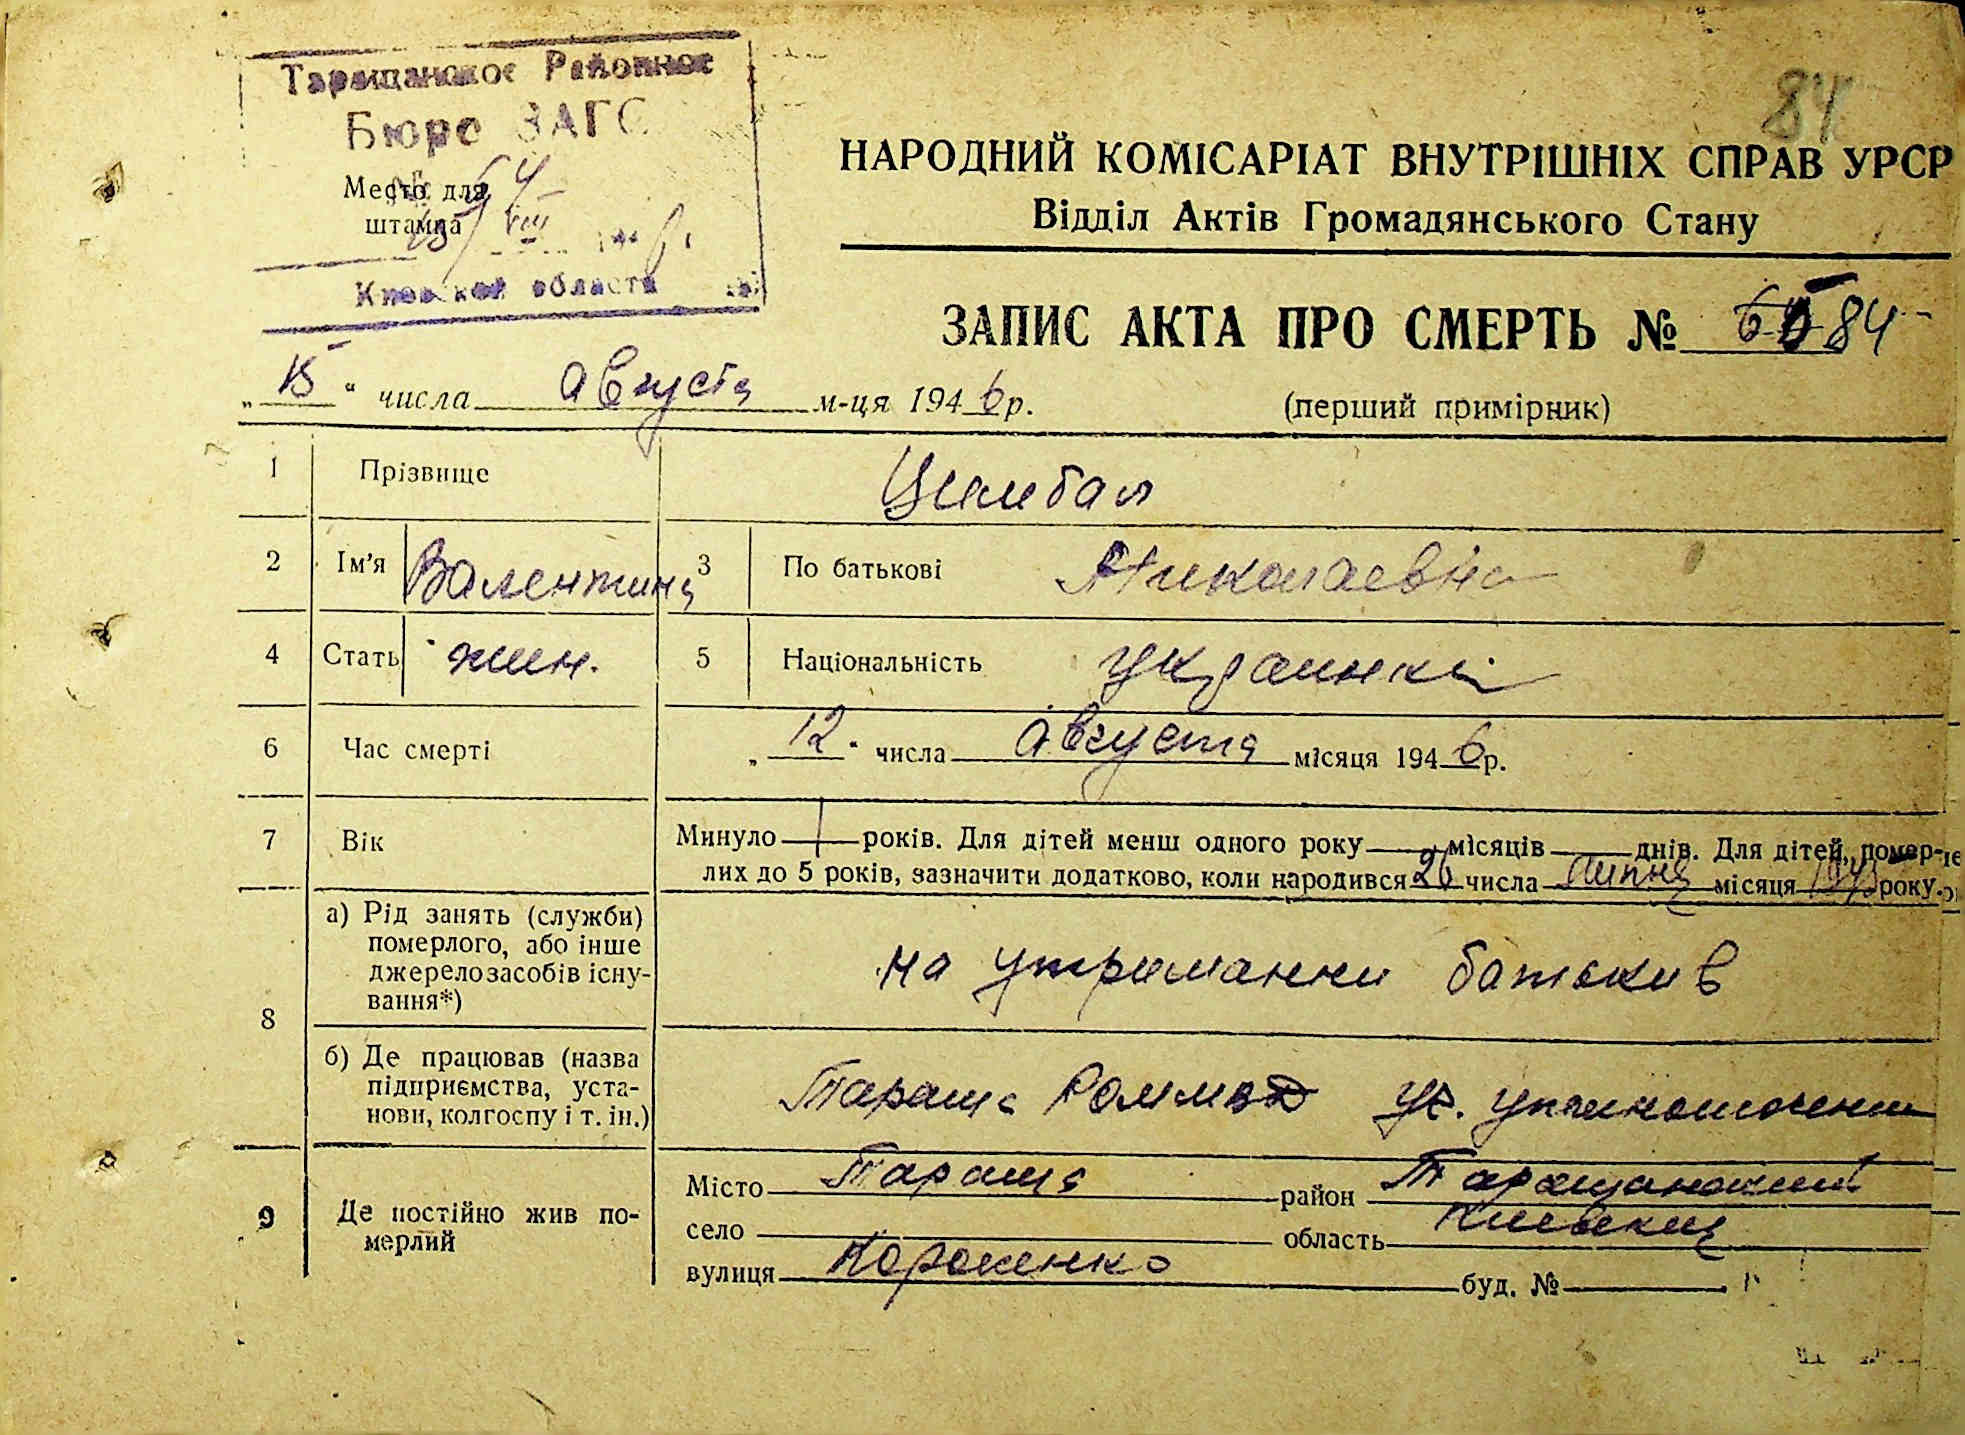 84
Таращанское Районное
Бюро ЗАГС
Место для
штампа
№ 84
15/VIII 1946 г.
Киевской области
НАРОДНИЙ КОМІСАРІАТ ВНУТРІШНІХ СПРАВ УРСР
Відділ Актів Громадянського Стану
ЗАПИС АКТА ПРО СМЕРТЬ № 84
„15“ числа августа м-ця 1946 р.
(перший примірник)
1 Прізвище Цимбал
2 Ім'я Валентина 3 По батькові Николаевна
4 Стать жин. 5 Національність украинка
6 Час смерті „12“ числа августа місяця 1946 р.
7 Вік Минуло 1 років. Для дітей менш одного року — місяців — днів. Для дітей, помер-
лих до 5 років, зазначити додатково, коли народився 26 числа липня місяця 1945 року.
8 а) Рід занять (служби)
померлого, або інше
джерело засобів існу-
вання*)
на утриманни батькив
б) Де працював (назва
підприємства, уста-
нови, колгоспу і т. ін.)
Тараща
9 Де постійно жив по-
мерлий
Місто Тараща район Таращанский
село область Киевская
вулиця буд. №